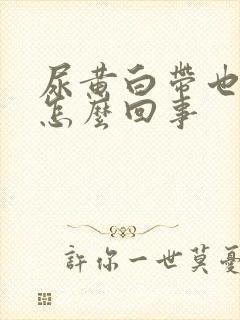 尿黄白帶也
怎麼回事
許你一世莫憂